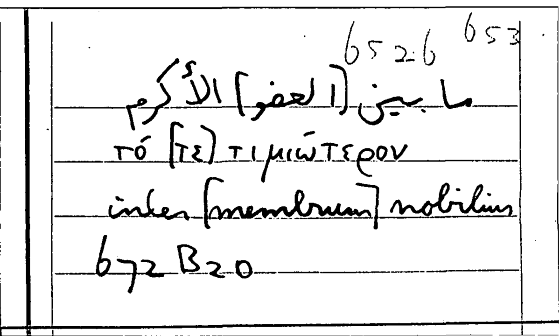 6526 653
ما بين [العضو] الأكرم
τό [τε] τιμιώτερον
inter [membrum] nobilius
672 B20